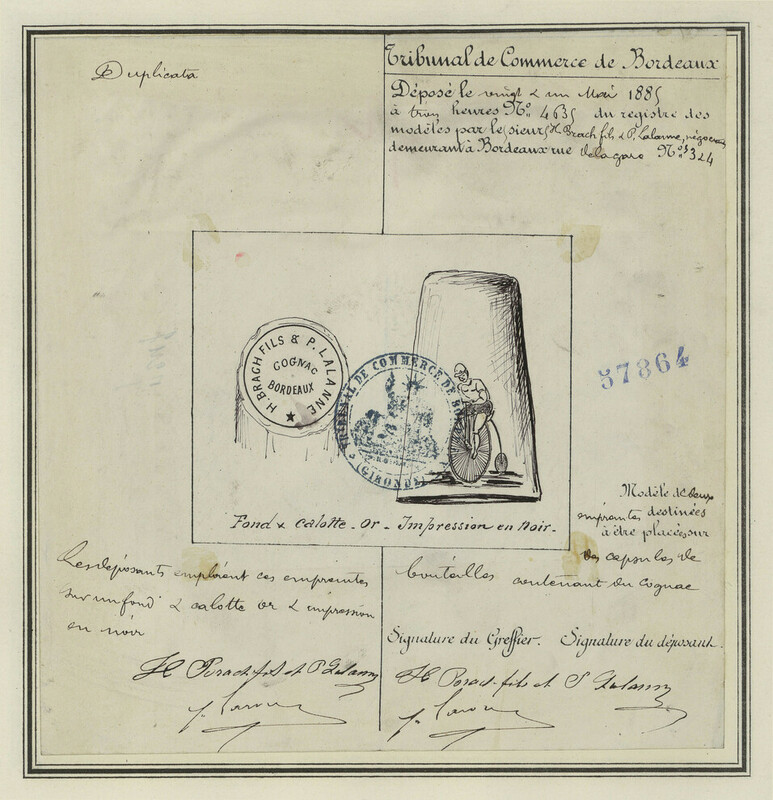 Duplicata
Tribunal de Commerce de Bordeaux
Déposé le vingt & un Mai 1885
à trois heures N° 4635 du registre des
modèles par le sieurs H. Brach fils & P. Lalanne, négociants
demeurant à Bordeaux rue N° 324
H. BRACH FILS & P. LALANNE
COGNAC
BORDEAUX
TRIBUNAL DE COMMERCE DE BORDEAUX
(GIRONDE)
57864
Fond & calotte - Or - Impression en Noir.
Modèle de deux
empreintes destinées
à être placées sur
des capsules de
bouteilles contenant du cognac
Les déposants emploient ces empreintes
sur un fond & calotte or & impression
en noir
Signature du Greffier. Signature du déposant.
H Brach fils et P Lalanne
H Brach fils et P Lalanne